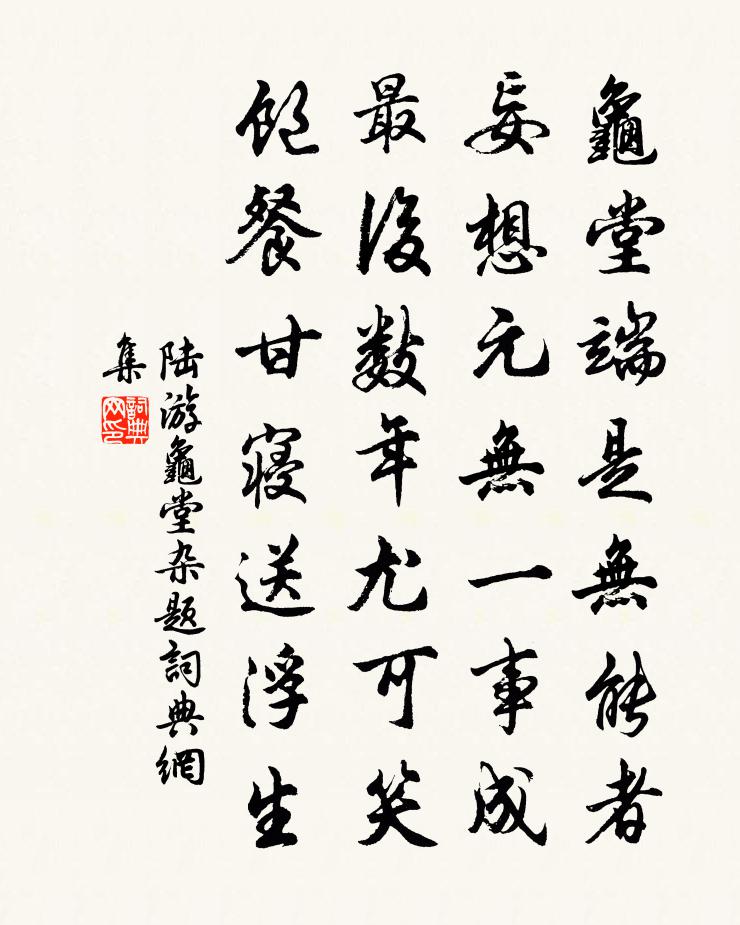 龜堂端是無能者
妄想元無一事成
最後数年尤可笑
飽餐甘寝送浮生
陆游龜堂杂题詞典網
集
詞典
网印